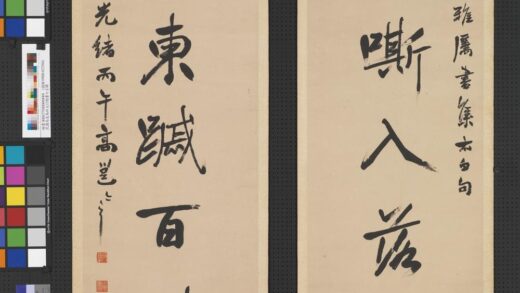 雅屬書集太白句
嘶入落
東䠞百
光緒丙午高邕之